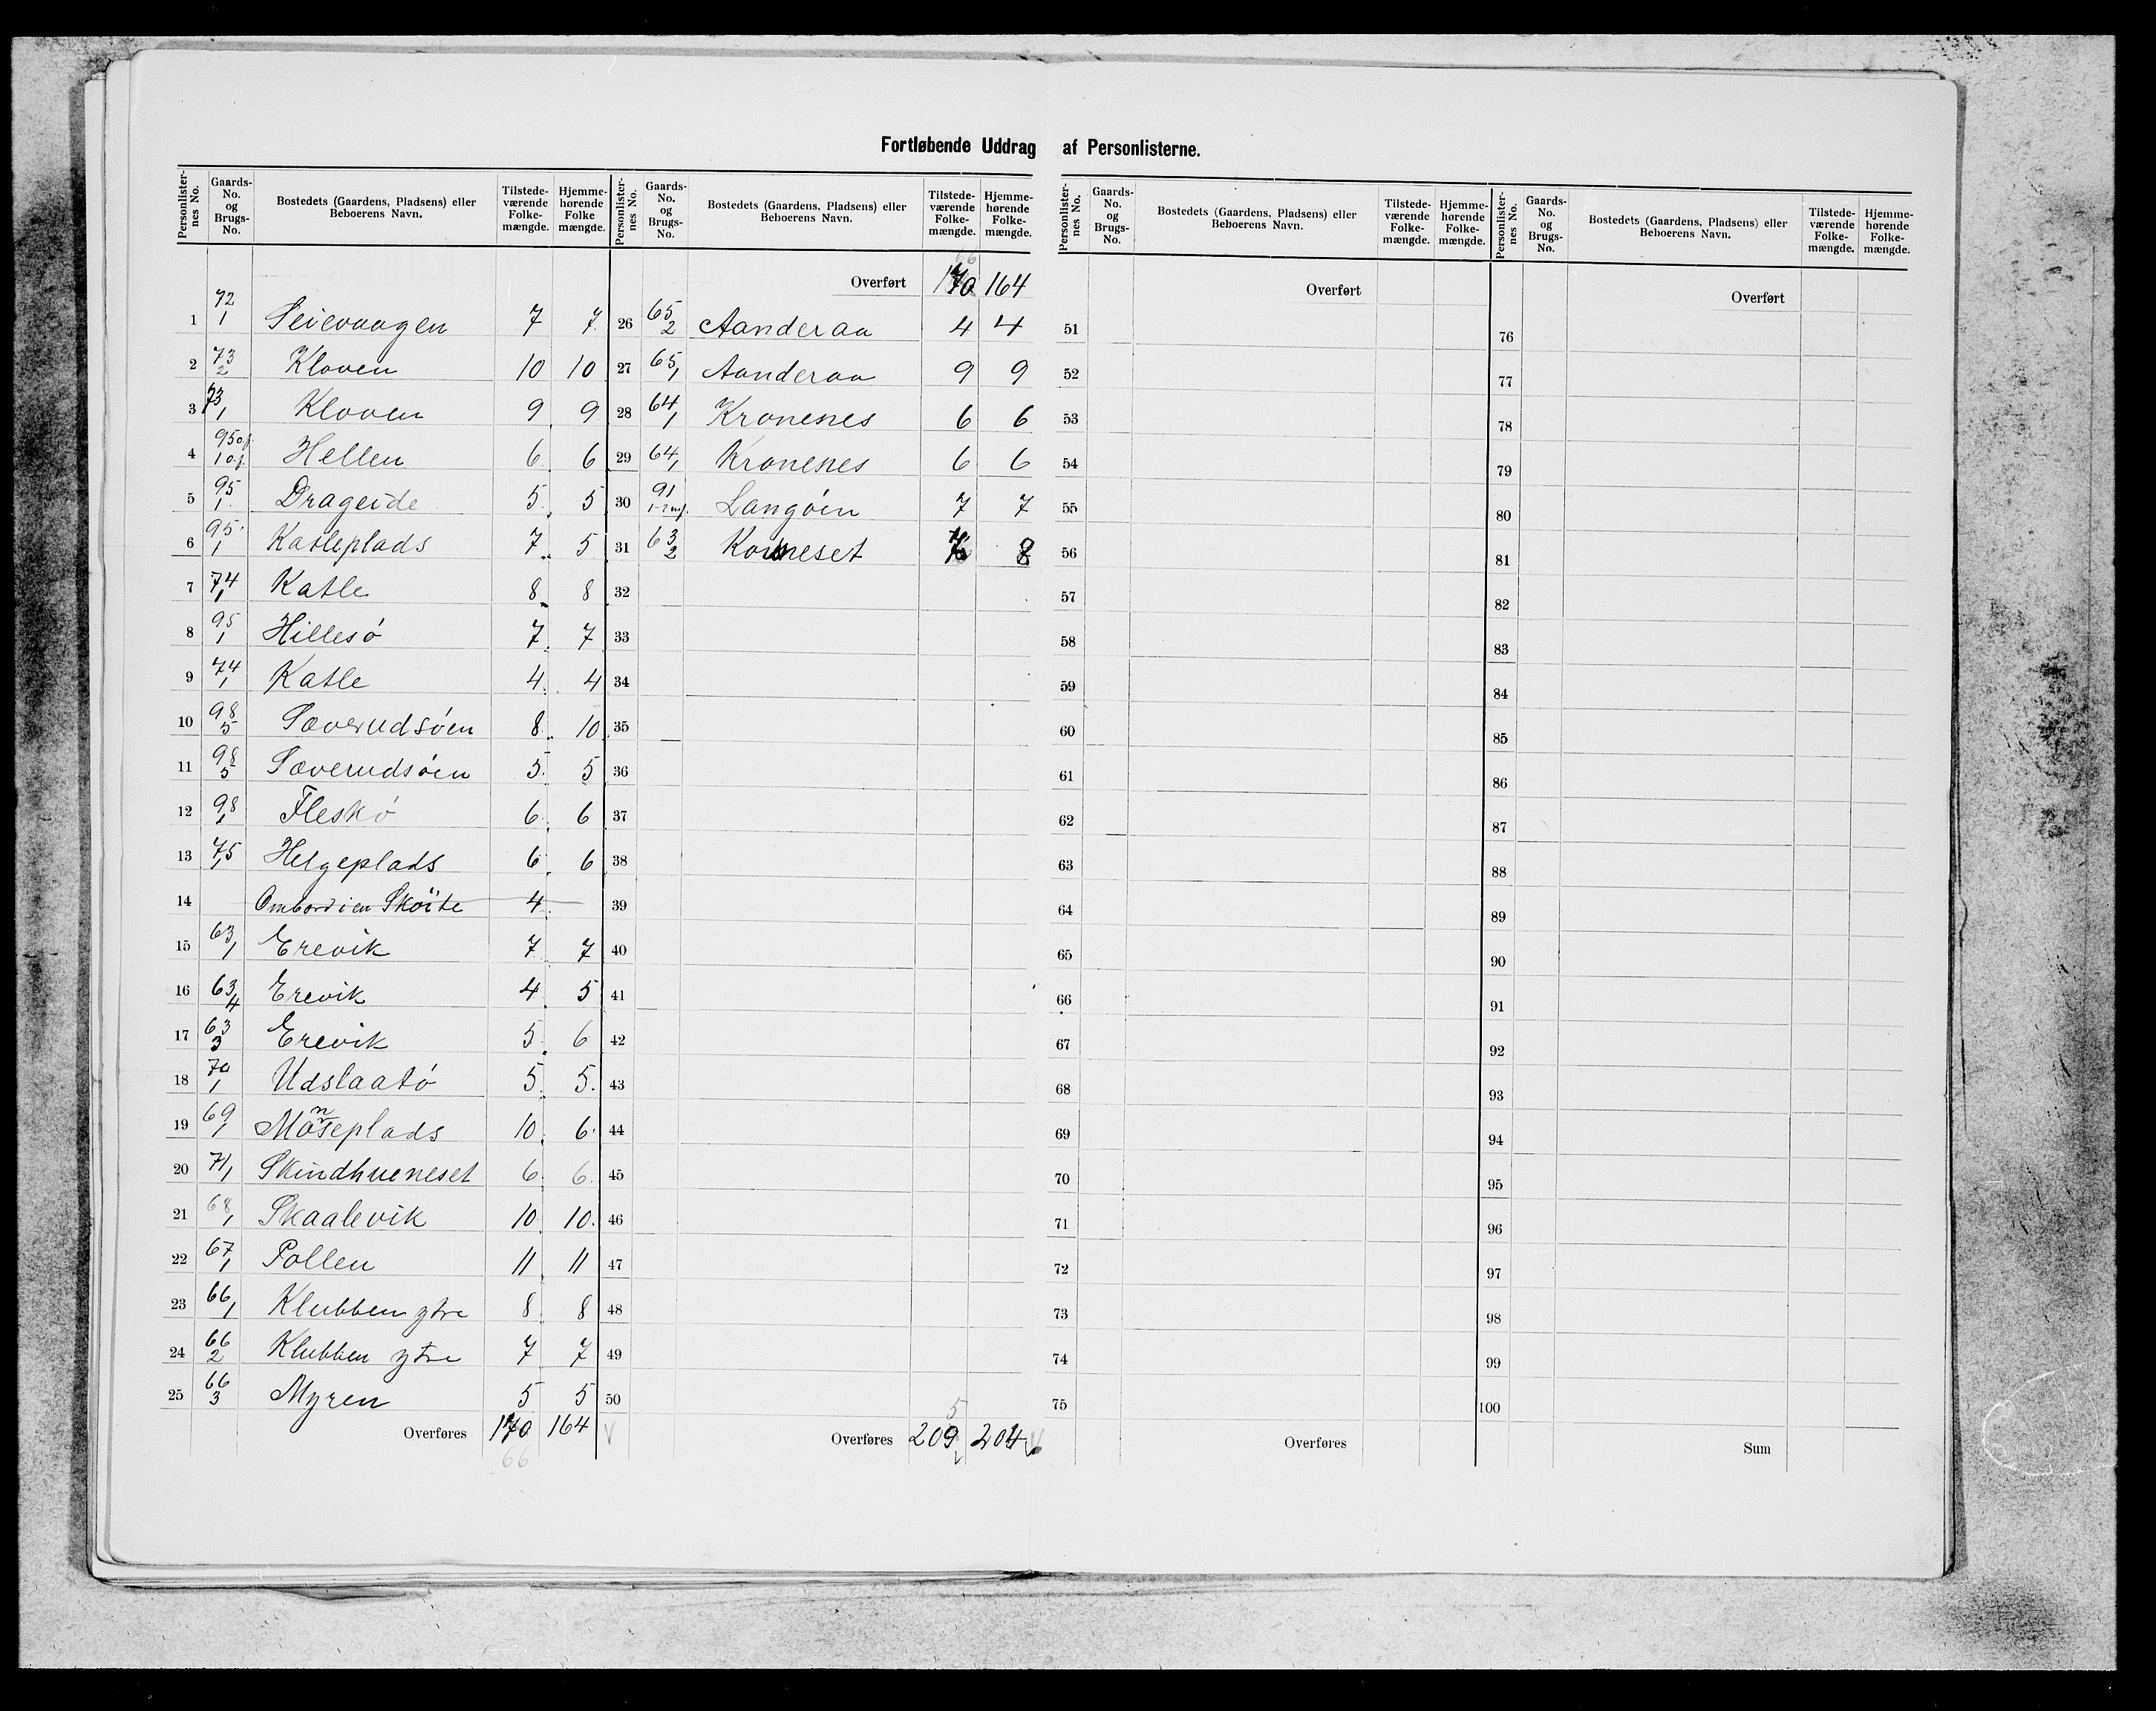 Fortløbende Uddrag af Personlisterne.
Personlisternes No. Gaards-No. og Brugs-No. Bostedets (Gaardens, Pladsens) eller Beboerens Navn. Tilstedeværende Folkemængde. Hjemmehørende Folke mængde.
1 72/1 Seievaagen 7 7
2 73/2 Kloven 10 10
3 73/1 Kloven 9 9
4 95 o.f. 1 o.f. Hellen 6 6
5 95/1 Drageide 5 5
6 95/1 Katleplads 7 5
7 74/1 Katle 8 8
8 95/1 Hillesö 7 7
9 74/1 Katle 4 4
10 98/5 Sæverudsöen 8 10
11 98/5 Sæverudsöen 5 5
12 98/1 Fleskö 6 6
13 75/1 Helgeplads 6 6
14 Ombord i en Sköite 4
15 63/1 Erevik 7 7
16 63/4 Erevik 4 5
17 63/3 Erevik 5 6
18 70/1 Udslaatö 5 5
19 69/1 Moseplads 10 6
20 71/1 Skindhueneset 6 6
21 68/1 Skaalevik 10 10
22 67/1 Pollen 11 11
23 66/1 Klubben ytre 8 8
24 66/2 Klubben ytre 7 7
25 66/3 Myren 5 5
Overføres 170 164
66
Personlisternes No. Gaards-No. og Brugs-No. Bostedets (Gaardens, Pladsens) eller Beboerens Navn. Tilstedeværende Folkemængde. Hjemmehørende Folkemængde.
66
Overført 170 164
26 65/2 Aanderaa 4 4
27 65/1 Aanderaa 9 9
28 64/1 Kronenes 6 6
29 64/1 Kronenes 6 6
30 91 Langöen 7 7
31 63/2 7 8
32
33
34
35
36
37
38
39
40
41
42
43
44
45
46
47
48
49
50
5
Overføres 209 204
Personlisternes No. Gaards-No. og Brugs-No. Bostedets (Gaardens, Pladsens) eller Beboerens Navn. Tilstedeværende Folkemængde. Hjemmehørende Folkemængde.
Overført
51
52
53
54
55
56
57
58
59
60
61
62
63
64
65
66
67
68
69
70
71
72
73
74
75
Overføres
Personlisternes No. Gaards-No. og Brugs-No. Bostedets (Gaardens, Pladsens) eller Beboerens Navn. Tilstedeværende Folkemængde. Hjemmehørende Folkemængde.
Overført
76
77
78
79
80
81
82
83
84
85
86
87
88
89
90
91
92
93
94
95
96
97
98
99
100
Sum